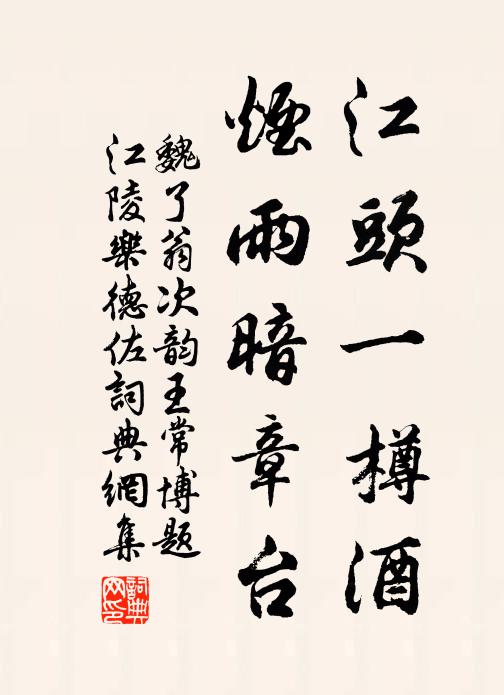 江頭一樽酒
煙雨暗章台
魏了翁次韵王常博题
江陵樂德佐詞典網集
詞典網印